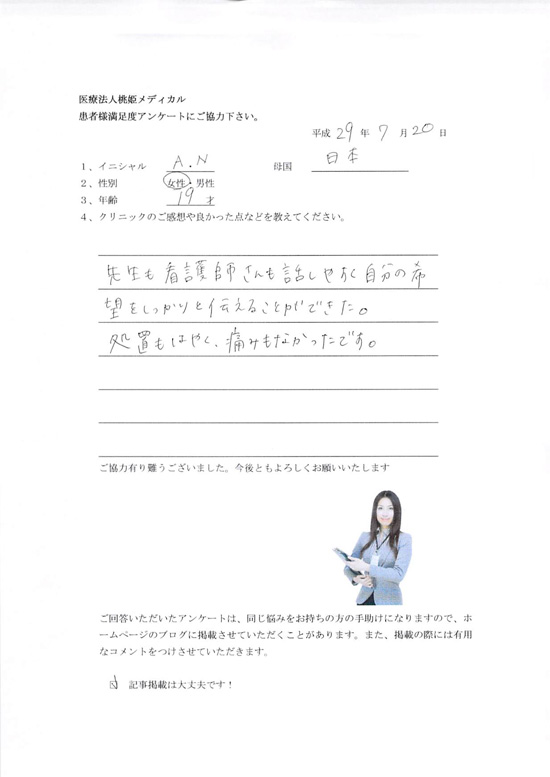 医療法人桃姫メディカル
患者様満足度アンケートにご協力下さい。
平成 29 年 7 月 20 日
1、イニシャル A.N 母国 日本
2、性別 女性・男性
3、年齢 19 才
4、クリニックのご感想や良かった点などを教えてください。
先生も看護師さんも話しやすく自分の希
望をしっかりと伝えることができた。
処置もはやく、痛みもなかったです。
ご協力有り難うございました。今後ともよろしくお願いいたします
ご回答いただいたアンケートは、同じ悩みをお持ちの方の手助けになりますので、ホ
ームページのブログに掲載させていただくことがあります。また、掲載の際には有用
なコメントをつけさせていただきます。
☑ 記事掲載は大丈夫です！